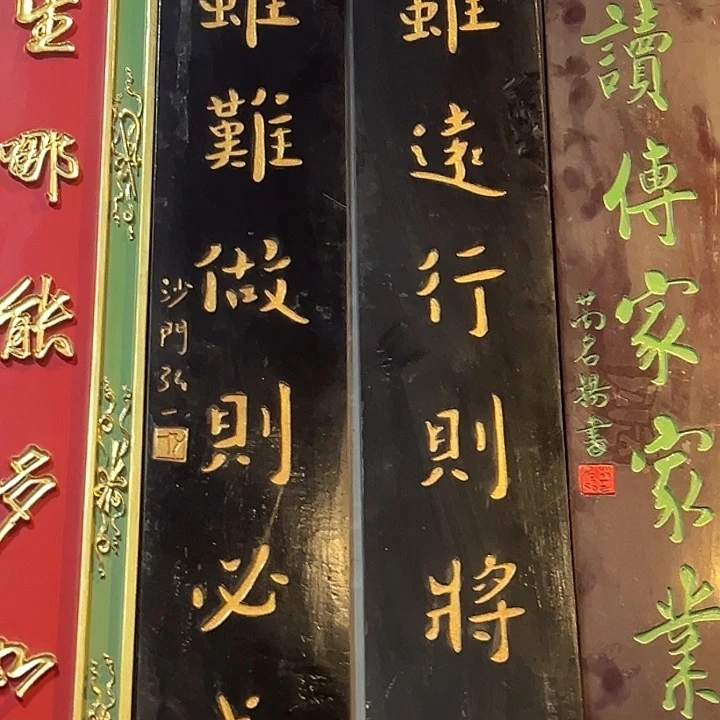 讀傳家家業
名揚書
雖遠行則將
雖難做則必
沙門弘一
哪能多如